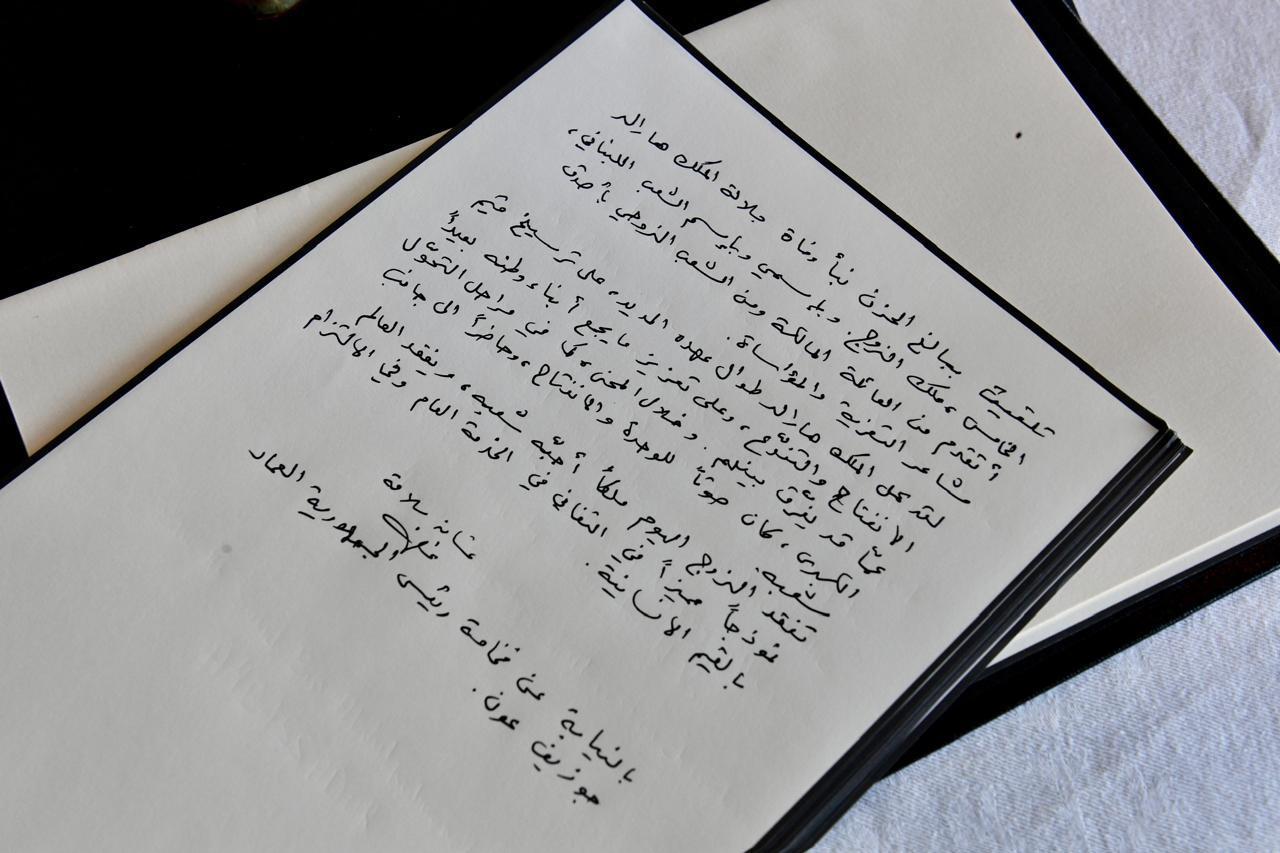 تلقيت ببالغ الحزن نبأ وفاة جلالة الملك هارالد
الخامس، ملك النروج. وبإسمي وبإسم الشعب اللبناني،
أتقدم من العائلة المالكة ومن الشعب النروجي بأصدق
مشاعر التعزية والمؤاساة.
لقد عمل الملك هارالد طوال عهده المديد، على ترسيخ قيم
الانفتاح والتنوّع، وعلى تعزيز ما يجمع أبناء وطنه بعيداً
عمّا قد يفرّق بينهم. وخلال المحن، كما في مراحل التحوّل
الكبرى، كان صوتاً للوحدة والانفتاح، وحاضراً الى جانب
شعبه.
تفقد النروج اليوم ملكاً أحبّه شعبه، ويفقد العالم
نموذجاً مميزاً في التفاني في الخدمة العام وفي الالتزام
بالقيم الانسانية.
بالنيابة عن فخامة رئيس الجمهورية العماد
جوزيف عون.